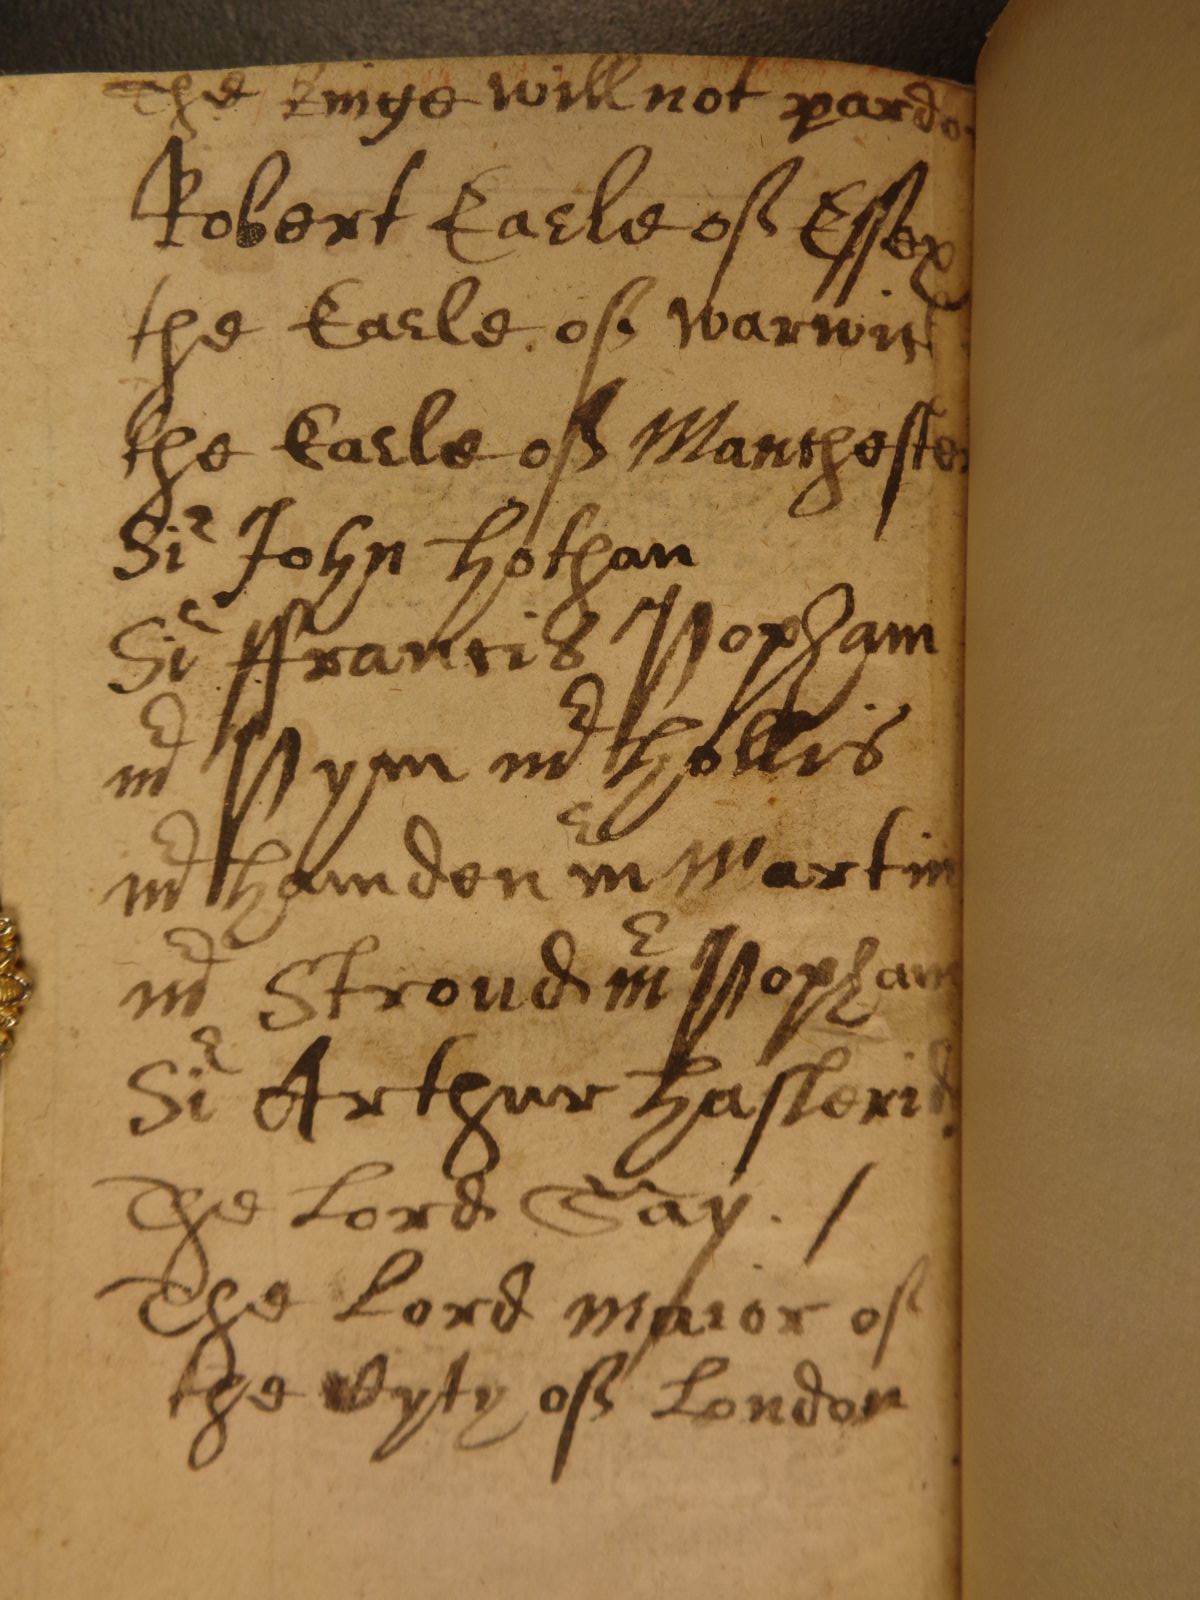 The Kinge will not pardo
Robert Earle off Essex
the Earle off Warwick
the Earle off Manchester
Sir John Hothan
Sir ffrancis Popham
mr Pym mr Hollis
mr Hamden mr Martin
mr Stroud mr Popham
Sir Arthur Haslerid
The Lord Say. /
The Lord Maior off
the Cyty off London